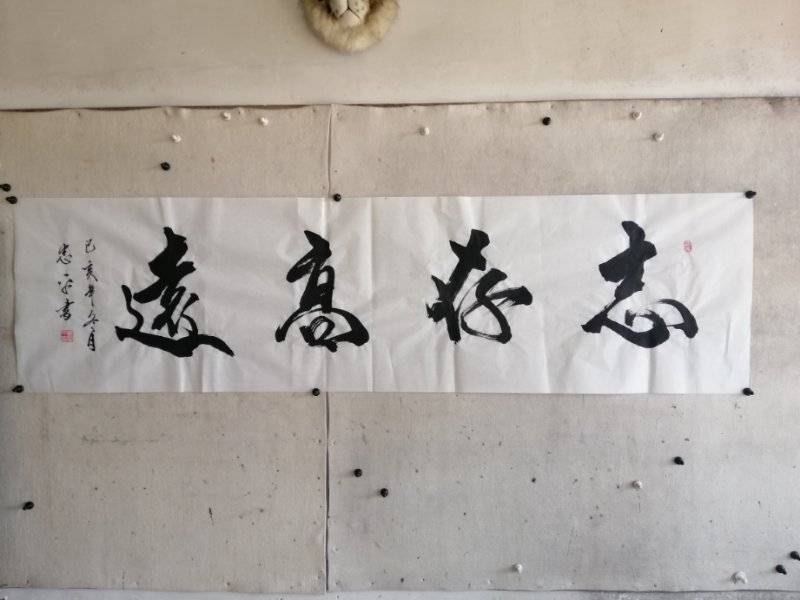 志存高遠
己亥年冬月
忠平書